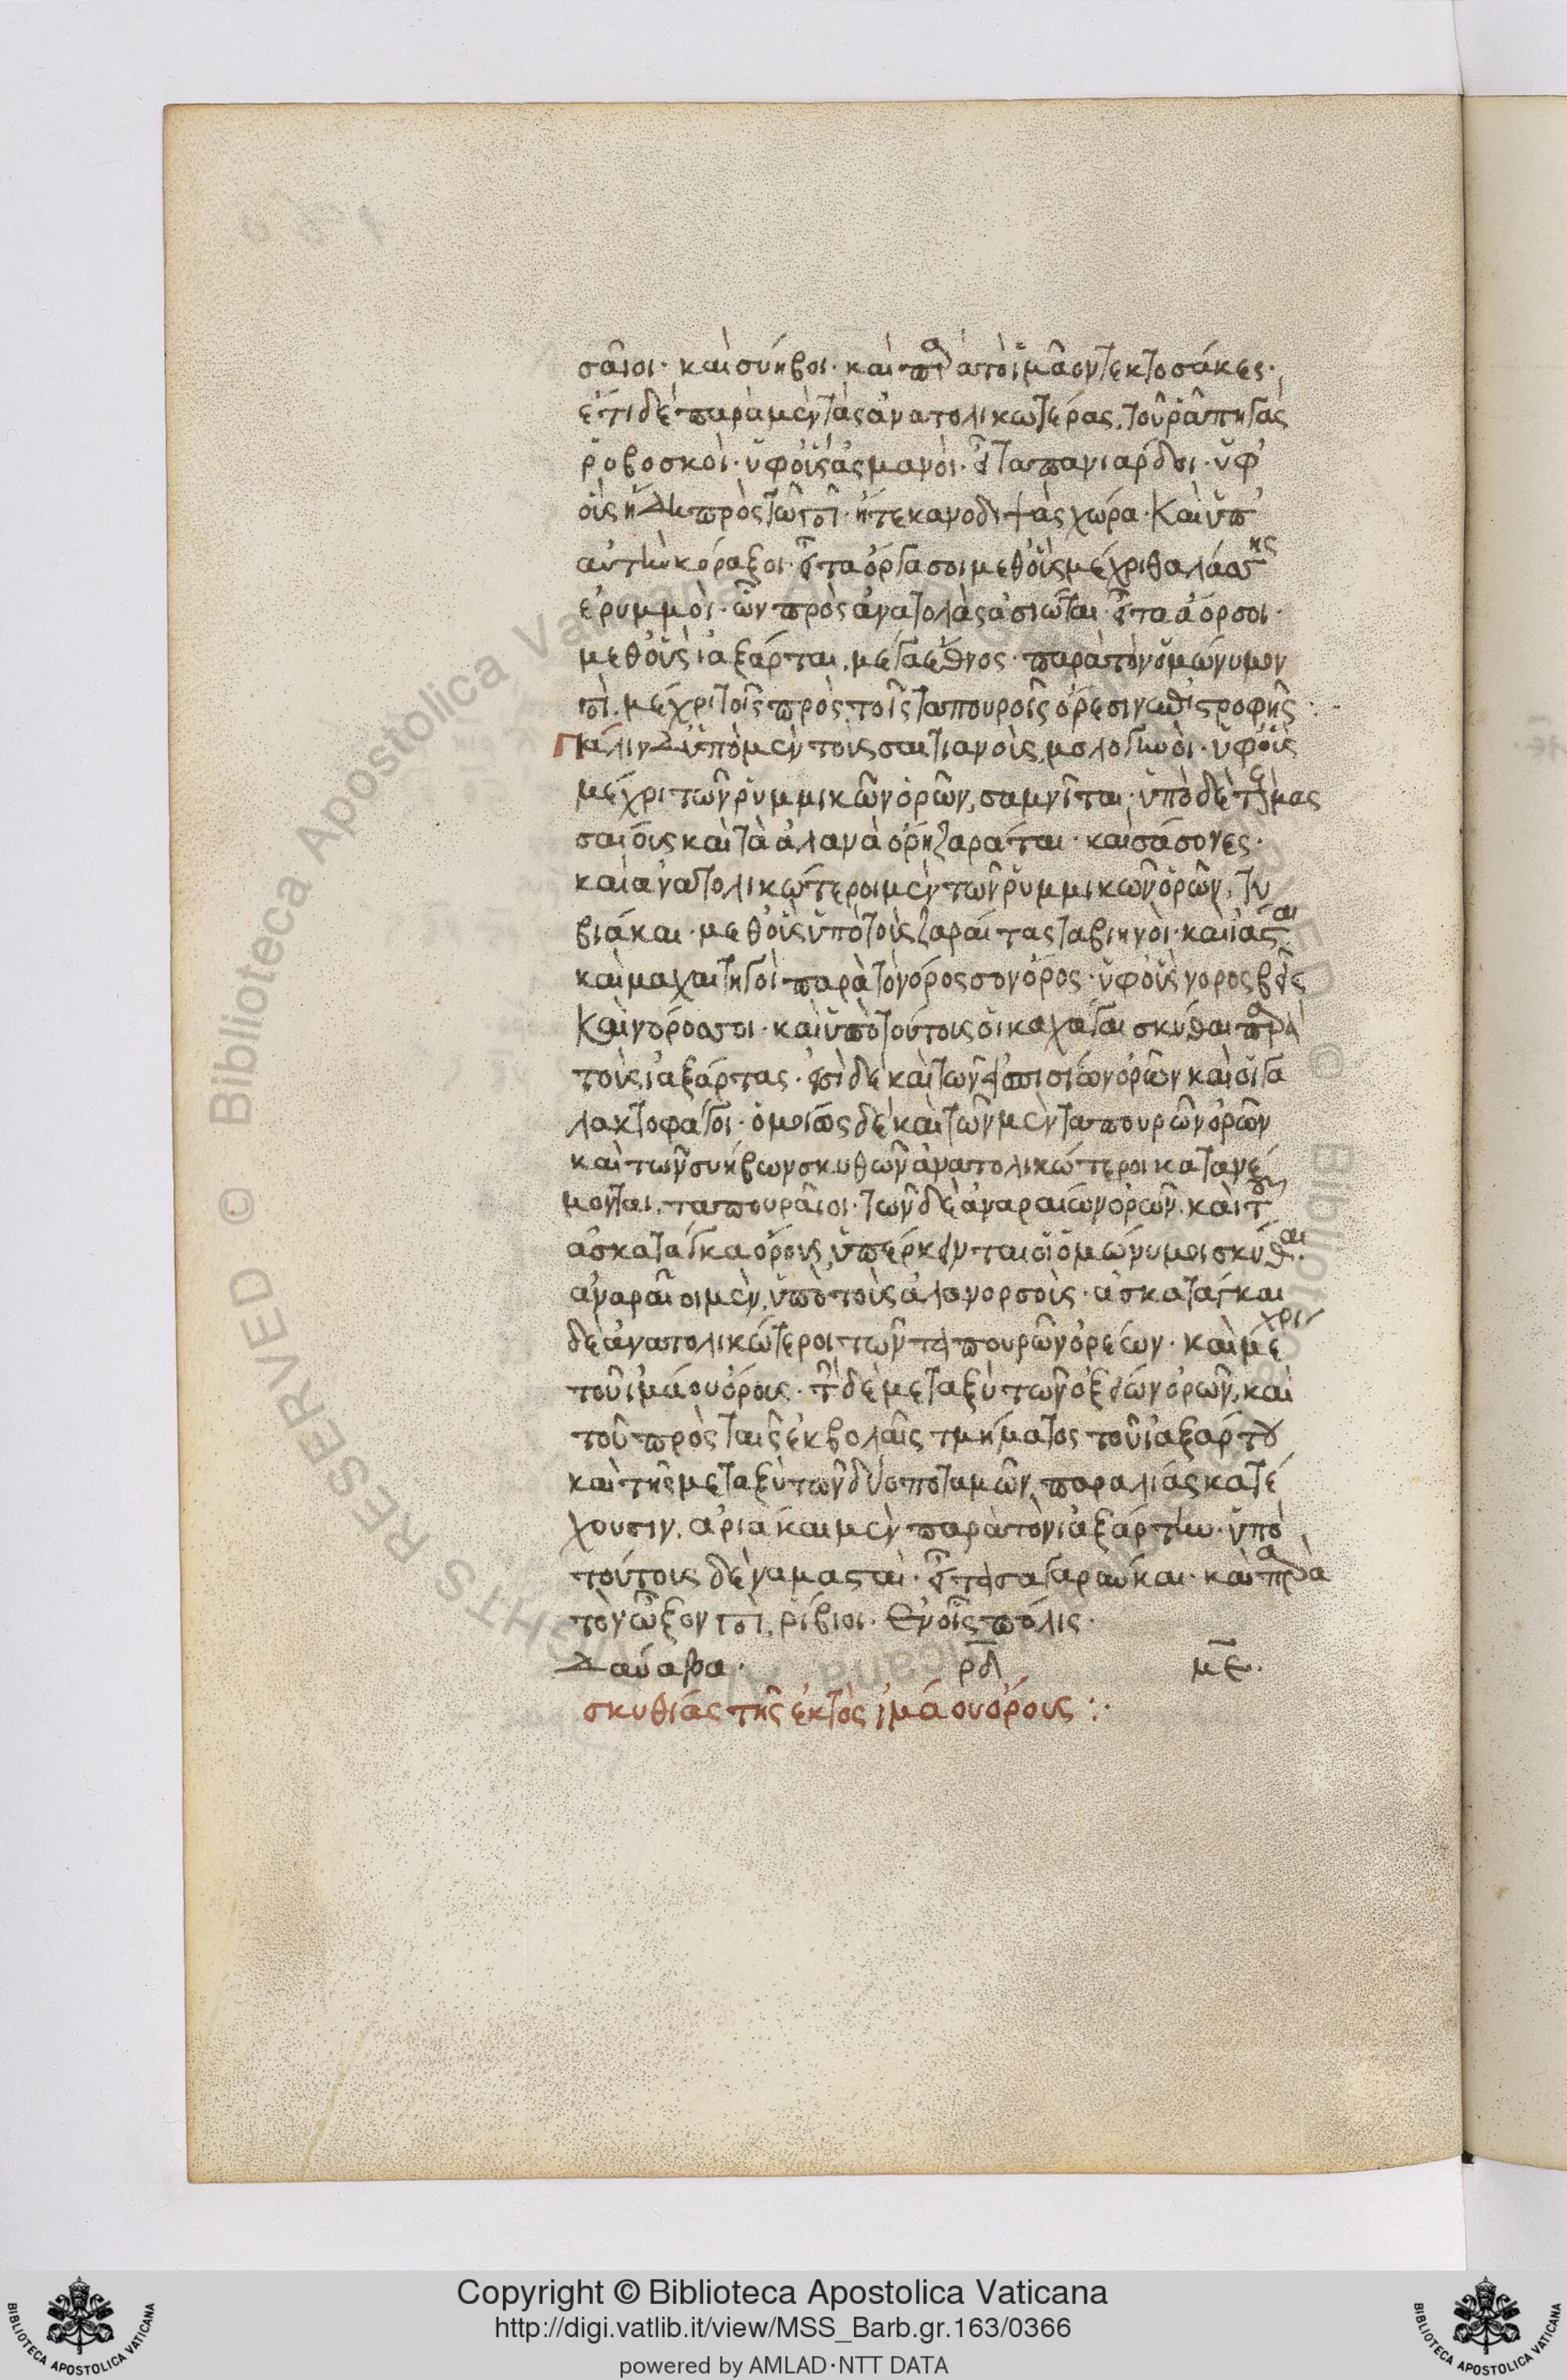 σαῖοι· καὶ σύηβοι· καὶ πα ὰ τὸ ἴμαον τεκτοσάκες·
ἔτι δὲ παρὰ μὲν τὰς ἀνατολικωτέρας τοῦ ῥᾶ πηγὰς
ῥοβοσκοὶ· ὑφ οὓς ἀσμανοὶ· εἶτα πανιαρδοι· ὑφ
οὓς ἤδη πρὸς τῶ π· ἥτε κανοδιψὰς χώρα· Καὶ ὑπ
αὐτὴν κόραξοι· εἶτα ὀργασοι μεθ οὓς μέχρι θαλάσσης
ἐρυμμοὶ· ὧν πρὸς ἀνατολὰς ἀσιῶται· εἶτα ἄορσοι·
μεθ οὓς ἰαξάρται, μέγα ἔθνος παρὰ τὸν ὁμώνυμον
π. μέχρι τοῖς πρὸς τοῖς ταπουροῖς ὄρεσιν ἐπιστροφῆς·
Πάλιν δ ὑπὸ μὲν τοὺς σαιτιανοὺς, μολογηνοὶ· ὑφ οὓς
μέχρι τῶν ῥυμμικῶν ὀρῶν, σαμνῖται· ὑπὸ δὲ τ μας
σαιους καὶ τὰ ἀλανὰ ὄρη ζαραται· καὶ σάσονες·
καὶ ἀνατολικώτεροι μὲν τῶν ῥυμμικῶν ὀρῶν, τυ
βιάκαι· μεθ οὓς ὑπὸ τοὺς ζαραίτας ταβιηνοὶ· καὶ ἰάσται
καὶ μαχαιτηγοὶ παρὰ τὸν ὄρος σονόρος· ὑφ οὓς νοροσβεῖς
Καὶ νόροσσοι· καὶ ὑπὸ τούτους οἱ καχαγαι σκύθαι παρὰ
τοὺς ἰαξάρτας· ἐπὶ δὲ καὶ τῶν ἀσπισίων ὀρῶν καὶ οἱ γα
λακτοφαγοι· ὁμοίως δὲ καὶ τῶν μὲν ταπουρῶν ὀρῶν
καὶ τῶν συήβων σκυθῶν ἀνατολικώτεροι κατανέ
μονται, ταπουραῖοι· τῶν δὲ ἀναραιων ὀρῶν, καὶ τοῦ
ἀσκατάγκα ὄρους, ὑπέρκεινται οἱ ὁμώνυμοι σκύθαι.
ἀναραῖοι μὲν, ὑπὸ τοὺς ἀλανορσοὺς· ἀσκατάγκαι
δὲ ἀνατολικώτεροι τῶν ταπουρῶν ὀρέων· καὶ μέχρι
τοῦ ἰμάου ὄρους· τὰ δὲ μεταξὺ τῶν ὀξείων ὀρῶν, καὶ
τοῦ πρὸς ταῖς ἐκβολαῖς τμήματος τοῦ ἰαξάρτου
καὶ τῆς μεταξὺ τῶν δύο ποταμῶν παραλίας κατέ
χουσιν, ἀριάκαι μὲν παρὰ τὸν ἰαξάρτην· ὑπὸ
τούτους δὲ ναμασται· εἶτα σαγαραύκαι· καὶ παρὰ
τὸν ὦξον π, ῥίβιοι· ἐν οἷς πόλις·
Δαύαβα· ρλ με·
σκυθίας τῆς ἐκτὸς ἰμάου ὄρους :·
Copyright © Biblioteca Apostolica Vaticana
http://digi.vatlib.it/view/MSS_Barb.gr.163/0366
powered by AMLAD·NTT DATA